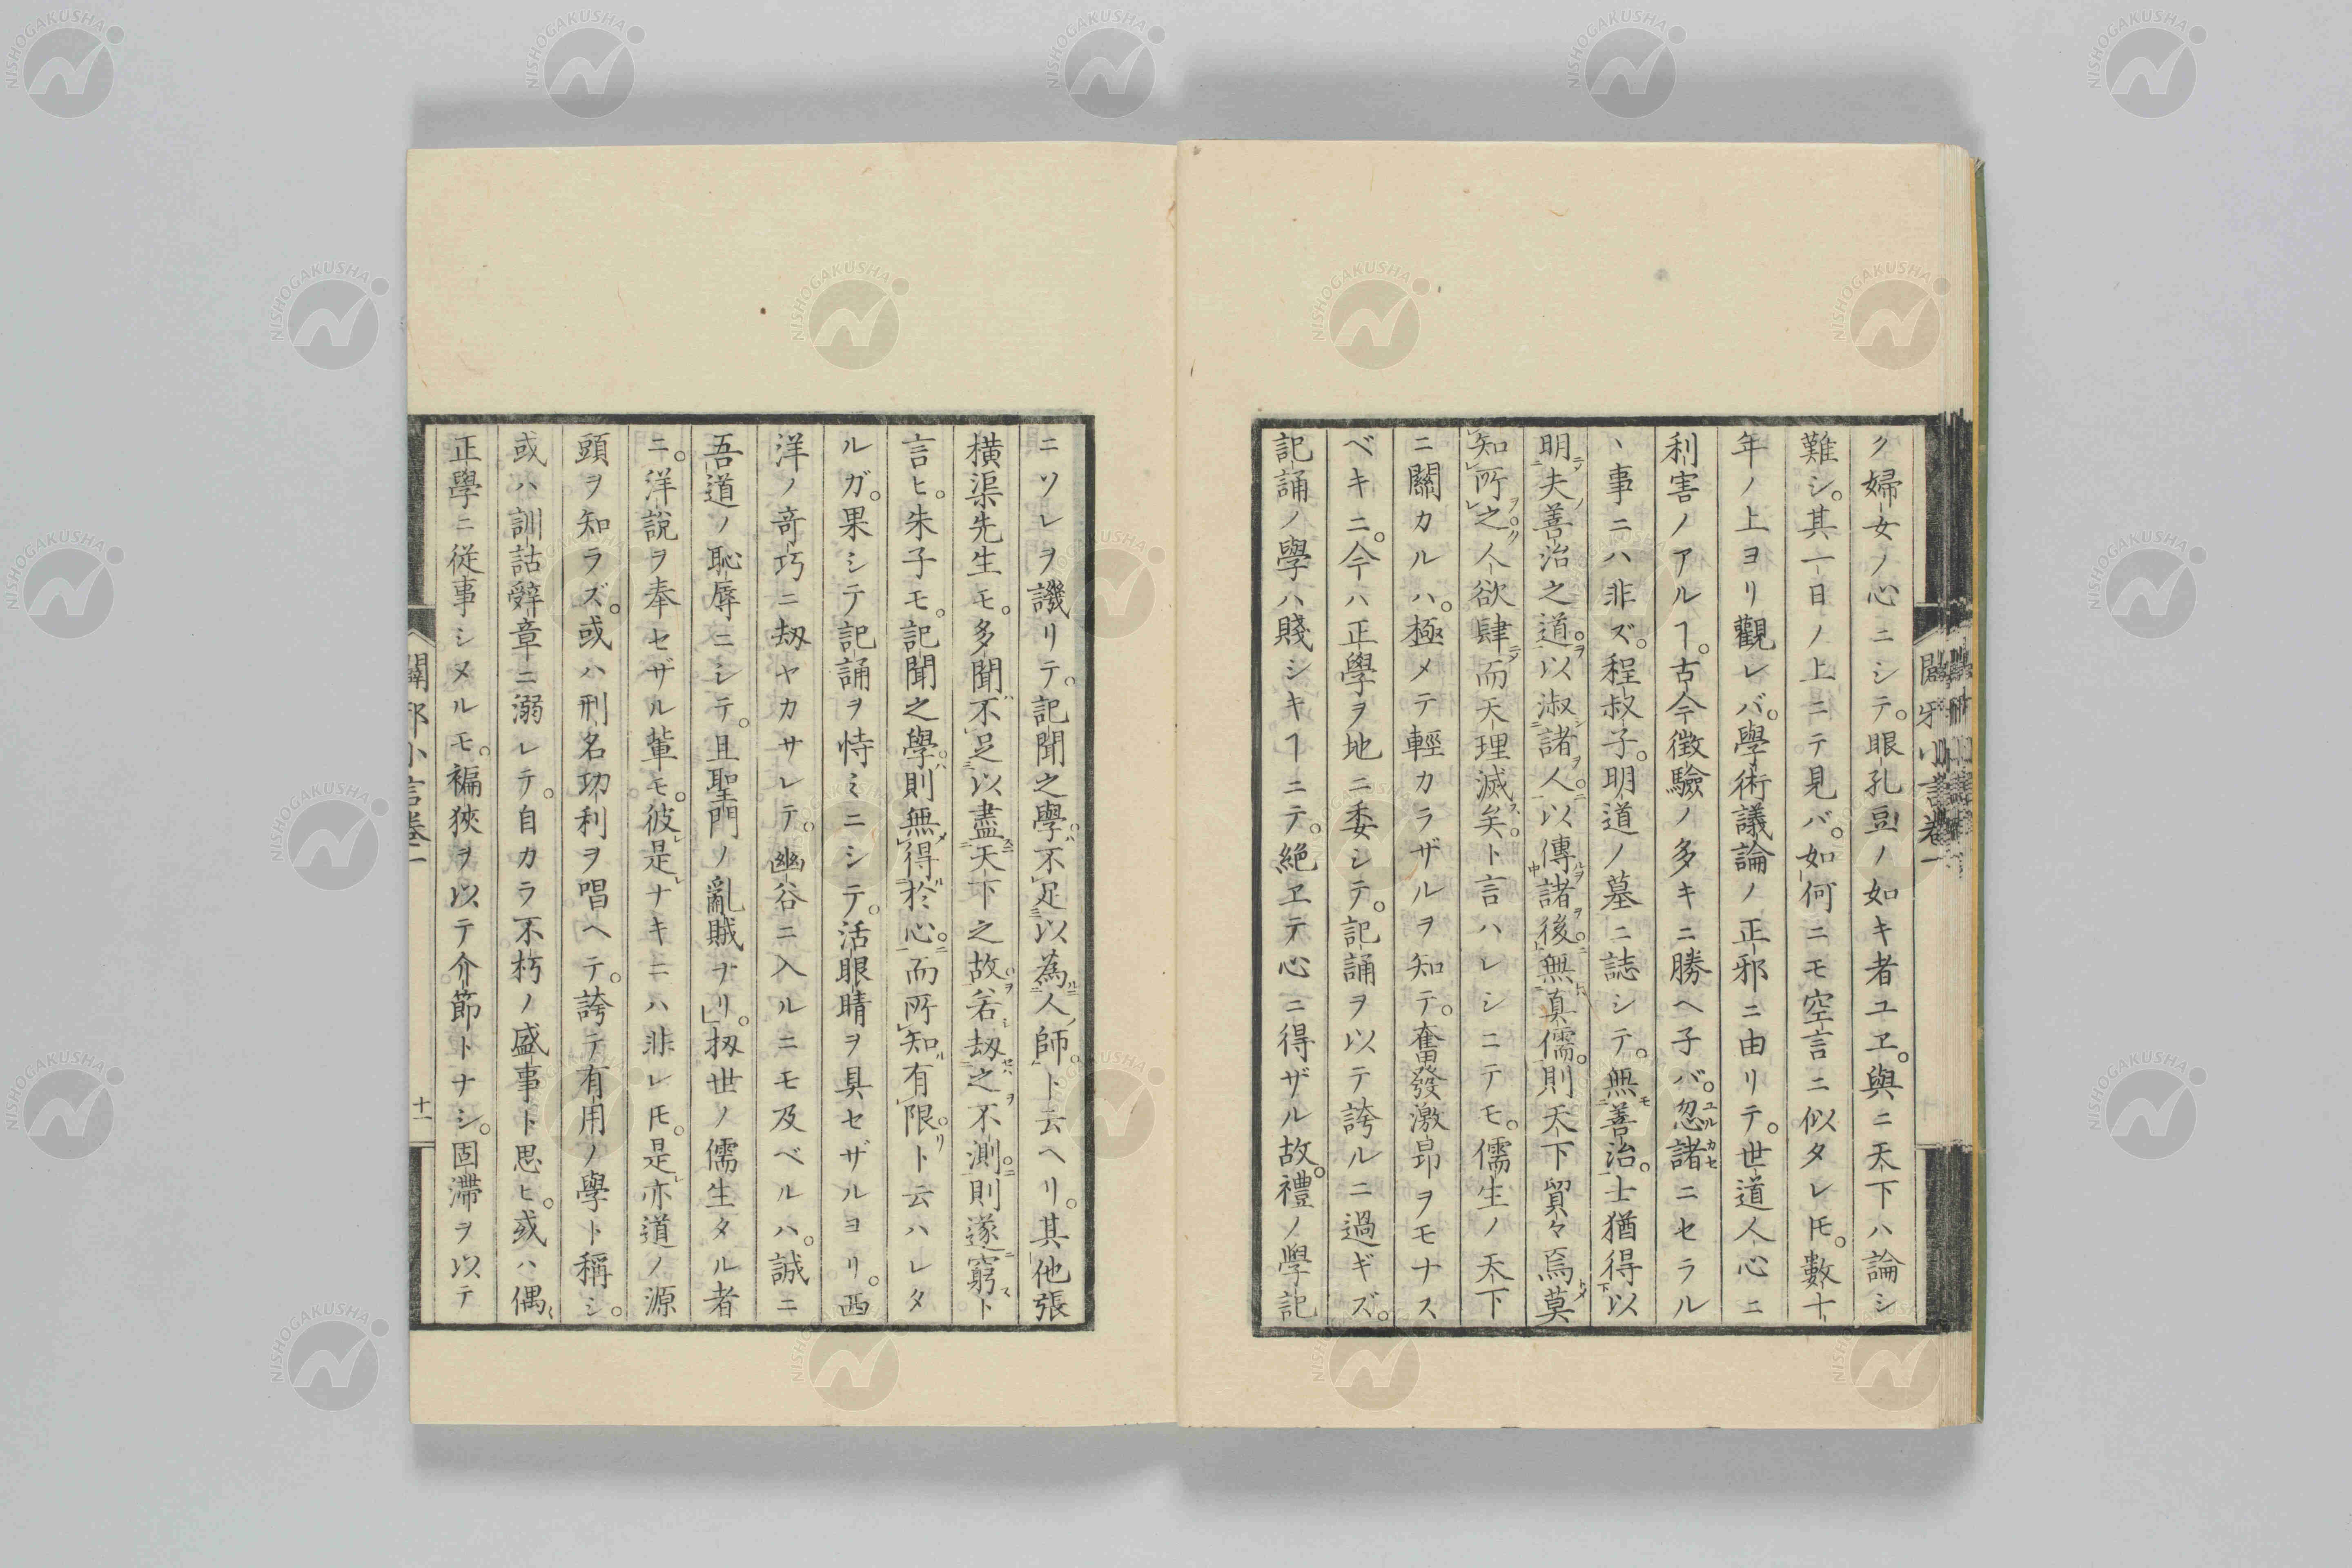 ク婦女ノ心ニシテ。眼孔豆ノ如キ者ユヱ。與ニ天下ハ論シ
難シ。其一日ノ上ニテ見バ。如何ニモ空言ニ似タレ𪜈。數十
年ノ上ヨリ觀レバ。學術議論ノ正邪ニ由リテ。世道人心ニ
利害ノアルヿ。古今徴驗ノ多キニ勝ヘ子バ。忽諸ニセラル
ヽ事ニハ非ズ。程叔子。明道ノ墓ニ誌シテ。無善治。士猶得以
明夫善治之道。以淑諸人。以傳諸後。無真儒。則天下貿々焉莫
知所之。人欲肆而天理滅矣。ト言ハレシニテモ。儒生ノ天下
ニ關カルハ。極メテ輕カラザルヲ知テ。奮發激昻ヲモナス
ベキニ。今ハ正學ヲ地ニ委シテ。記誦ヲ以テ誇ルニ過ギズ。
記誦ノ學ハ賤シキヿニテ。絶ヱテ心ニ得ザル故。禮ノ學記
ニソレヲ譏リテ。記聞之學。不足以為人師。ト云ヘリ。其他張
橫渠先生モ。多聞不足以盡天下之故。若刼之不測。則遂窮ト
言ヒ。朱子モ。記聞之學。則無得於心。而所知有限。ト云ハレタ
ルガ。果シテ記誦ヲ恃ミニシテ。活眼睛ヲ具セザルヨリ。西
洋ノ竒巧ニ刼ヤカサレテ。幽谷ニ入ルニモ及ベルハ。誠ニ
吾道ノ恥辱ニシテ。且聖門ノ亂賊ナリ。扨世ノ儒生タル者
ニ。洋説ヲ奉セザル輩モ。彼是ナキニハ非レ𪜈。是亦道ノ源
頭ヲ知ラズ。或ハ刑名功利ヲ唱ヘテ。誇テ有用ノ學ト稱シ。
或ハ訓詁辭章ニ溺レテ。自カラ不朽ノ盛事ト思ヒ。或ハ偶
正學ニ従事シヌルモ。褊狹ヲ以テ介節トナシ。固滯ヲ以テ
闢邪小言卷一
十一
NISHOGAKUSHA